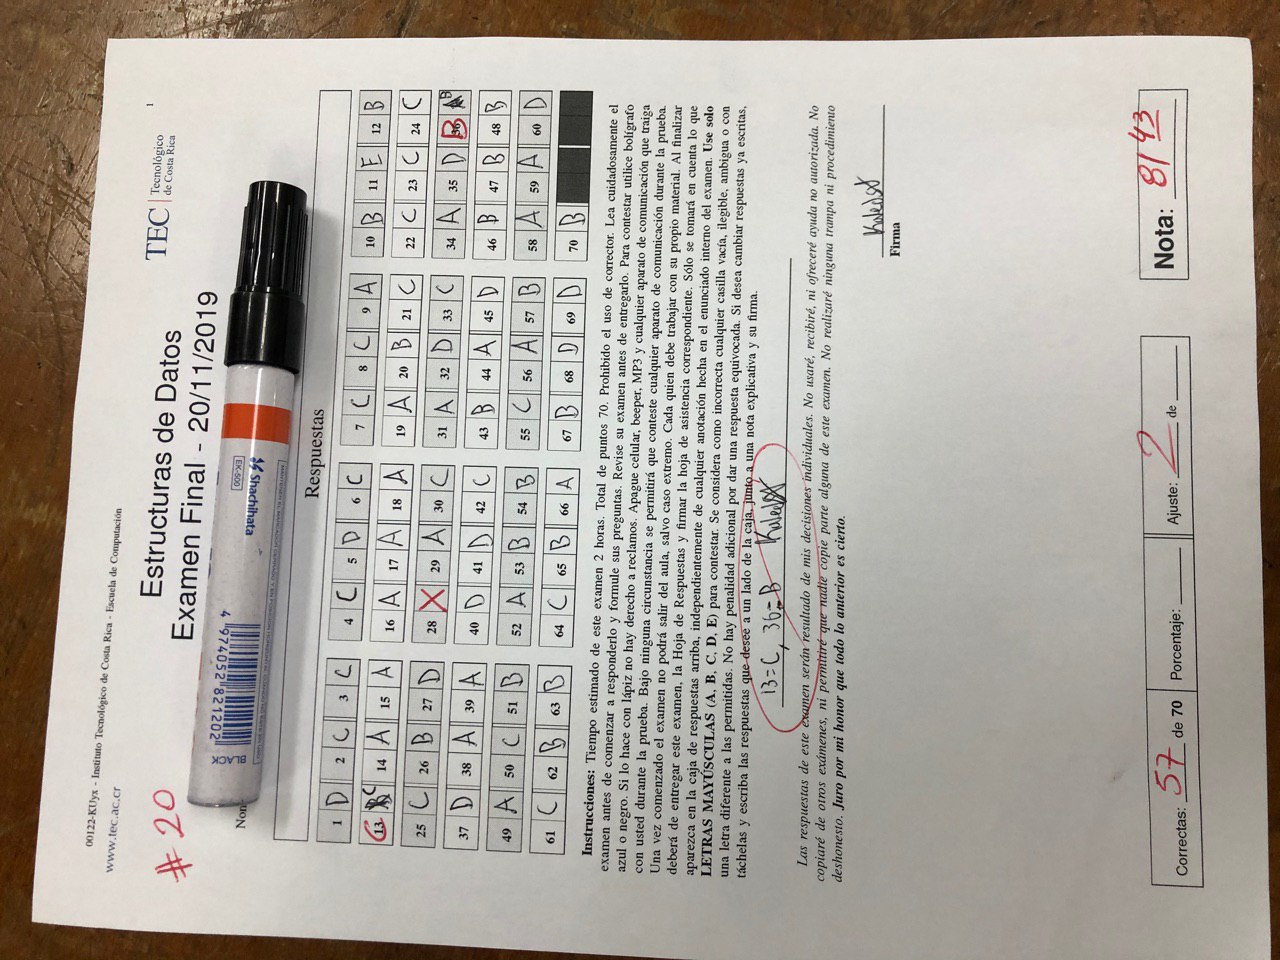 00122-KUyx - Instituto Tecnológico de Costa Rica - Escuela de Computación
1
www.tec.ac.cr
TEC | Tecnológico de Costa Rica
# 20
Estructuras de Datos
Examen Final - 20/11/2019
Nom
BLACK
4 974052 821202
EK-500
Shachihata
Respuestas
1 D 2 C 3 C 4 C 5 D 6 C 7 C 8 C 9 A 10 B 11 E 12 B
13 C 14 A 15 A 16 A 17 A 18 A 19 A 20 B 21 C 22 C 23 C 24 C
25 C 26 B 27 D 28 X 29 A 30 C 31 A 32 D 33 C 34 A 35 D 36 B
37 D 38 A 39 A 40 D 41 D 42 C 43 B 44 A 45 D 46 B 47 B 48 B
49 A 50 C 51 B 52 A 53 B 54 B 55 C 56 A 57 B 58 A 59 A 60 D
61 C 62 B 63 B 64 C 65 B 66 A 67 B 68 D 69 D 70 B
Instrucciones: Tiempo estimado de este examen 2 horas. Total de puntos 70. Prohibido el uso de corrector. Lea cuidadosamente el
examen antes de comenzar a responderlo y formule sus preguntas. Revise su examen antes de entregarlo. Para contestar utilice bolígrafo
azul o negro. Si lo hace con lápiz no hay derecho a reclamos. Apague celular, beeper, MP3 y cualquier aparato de comunicación que traiga
con usted durante la prueba. Bajo ninguna circunstancia se permitirá que conteste cualquier aparato de comunicación durante la prueba.
Una vez comenzado el examen no podrá salir del aula, salvo caso extremo. Cada quien debe trabajar con su propio material. Al finalizar
deberá de entregar este examen, la Hoja de Respuestas y firmar la hoja de asistencia correspondiente. Sólo se tomará en cuenta lo que
aparezca en la caja de respuestas arriba, independientemente de cualquier anotación hecha en el enunciado interno del examen. Use solo
LETRAS MAYÚSCULAS (A, B, C, D, E) para contestar. Se considera como incorrecta cualquier casilla vacía, ilegible, ambigua o con
una letra diferente a las permitidas. No hay penalidad adicional por dar una respuesta equivocada. Si desea cambiar respuestas ya escritas,
táchelas y escriba las respuestas que desee a un lado de la caja, junto a una nota explicativa y su firma.
13=C, 36=B
Las respuestas de este examen serán resultado de mis decisiones individuales. No usaré, recibiré, ni ofreceré ayuda no autorizada. No
copiaré de otros exámenes, ni permitiré que nadie copie parte alguna de este examen. No realizaré ninguna trampa ni procedimiento
deshonesto. Juro por mi honor que todo lo anterior es cierto.
Firma
Correctas: 57 de 70
Porcentaje:
Ajuste: 2 de
Nota: 8143